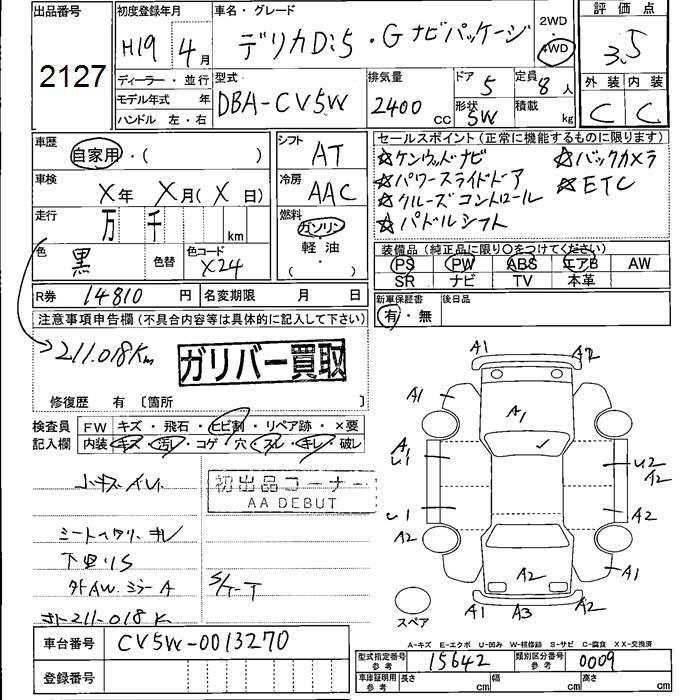 出品番号 初度登録年月 車名・グレード 2WD 評価点
2127 H19年 4月 デリカD:5・Gナビパッケージ 4WD 3.5
ディーラー・並行 型式 排気量 ドア 定員 外装 内装
モデル年式 年 DBA-CV5W 2400 cc 5 8人 C C
ハンドル 左・右 形状 5W 積載 kg
車歴 自家用・( ) シフト AT セールスポイント(正常に機能するものに限ります)
☆ケンウッドナビ ☆バックカメラ
車検 X年 X月(X日) 冷房 AAC ☆パワースライドドア ☆ETC
☆クルーズコントロール
走行 万 千 km 燃料 ガソリン ☆パドルシフト
軽油
( ・ )
色 黒 色替 色コード X24 装備品(純正品に限り○をつけてください)
PS PW ABS エアB AW
SR ナビ TV 本革
R券 14810円 名変期限 月 日 新車保証書 後日品
有・無
注意事項申告欄(不具合内容等は具体的に記入して下さい)
211.018Km ガリバー買取
修復歴 有 〔箇所 〕
検査員 FW キズ・飛石・ヒビ割・リペア跡・×要
記入欄 内装 キズ・汚レ・コゲ・穴・スレ・キレ・破レ
初出品コーナー
AA DEBUT
外AW.ミラーA
211.018K
A1 A2
A1 A1
A U1 U2 A2
U1 A2
A2 A2 A1
A1 A3 A2
スペア
A-キズ E-エクボ U-凹み W-補修跡 S-サビ C-腐食 XX-交換済
車台番号 CV5W-0013270
型式指定番号 参考 15642 類別区分番号 参考 0009
登録番号 車庫証明用 参考 長さ cm 幅 cm 高さ cm